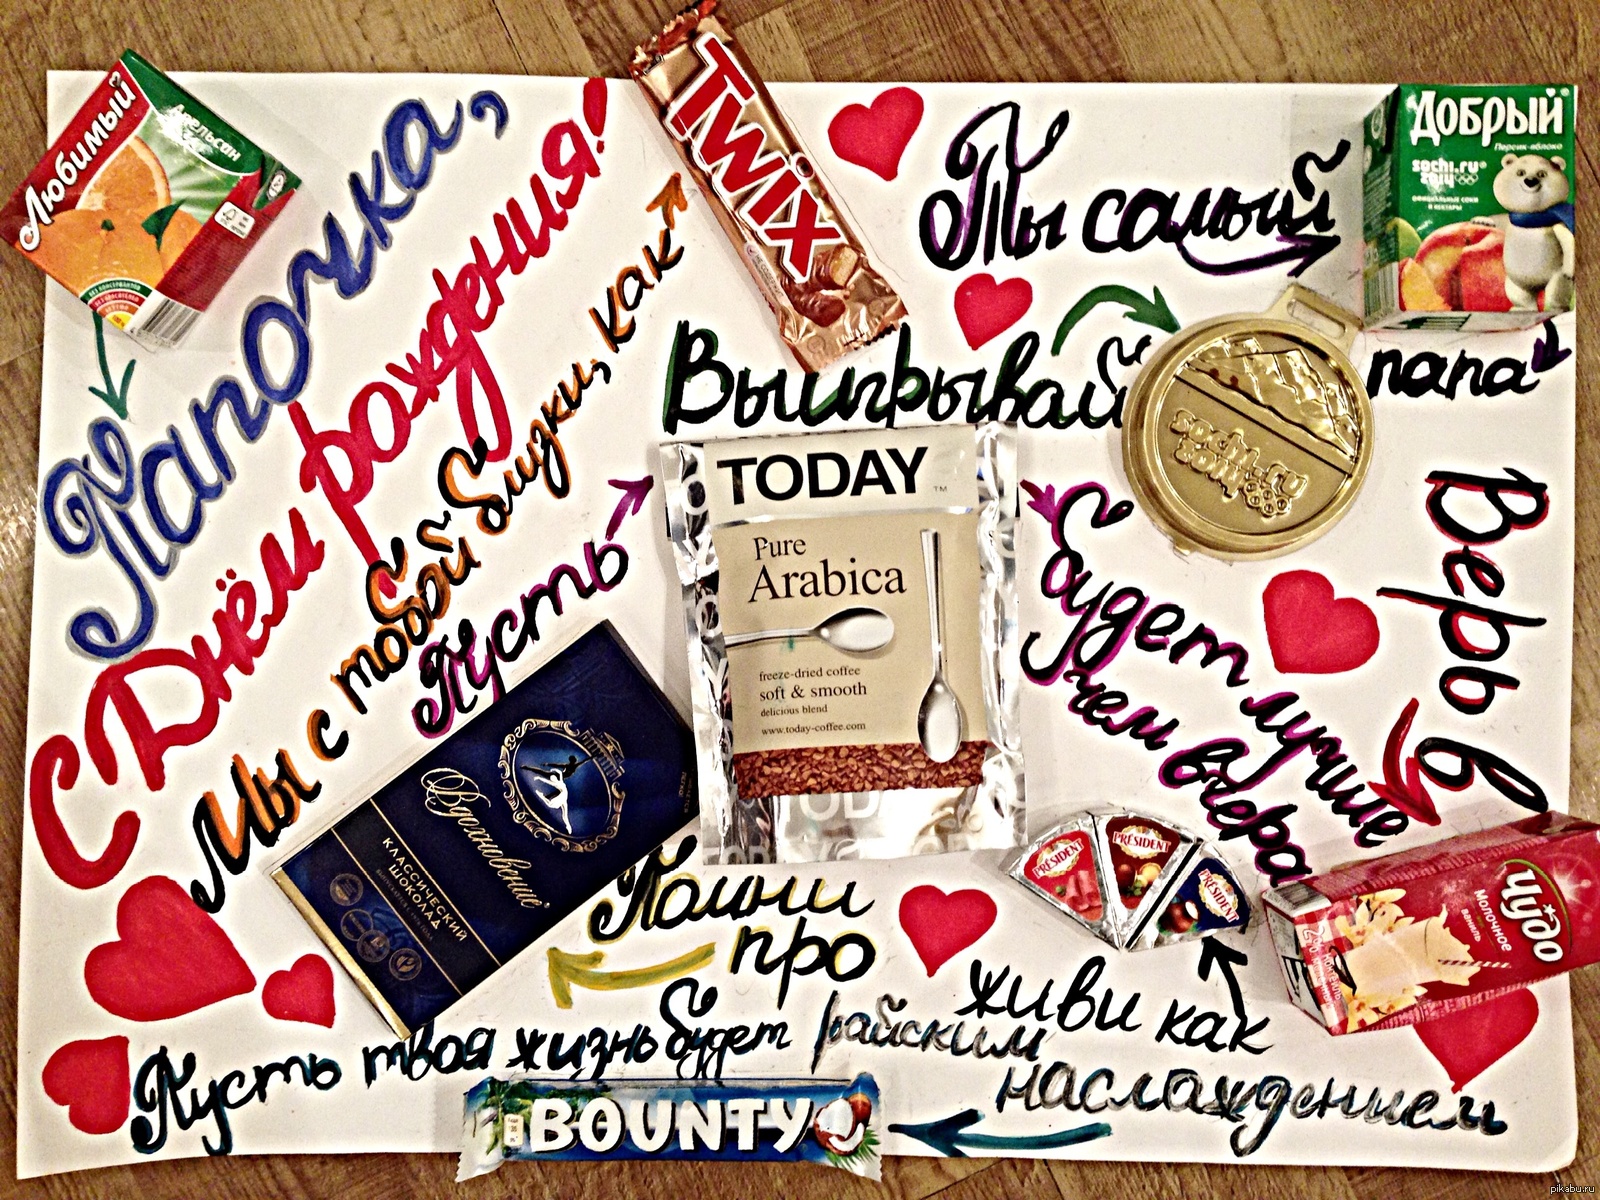 Любимый
Апельсин
Папочка,
С Днём рождения!
Мы с тобой близки, как
TWIX
Ты самый
Добрый
Персик-яблоко
sochi.ru
2014
официальные соки
и нектары
папа
Выигрывай
sochi.ru
2014
Пусть
TODAY
TM
Pure
Arabica
freeze-dried coffee
soft & smooth
delicious blend
www.today-coffee.com
будет лучше
чем вчера
Верь в
Чудо
Молочное
ваниль
коктейль
2%
Помни
про
Вдохновение
КЛАССИЧЕСКИЙ
ШОКОЛАД
живи как
PRÉSIDENT
PRÉSIDENT
PRÉSIDENT
Пусть твоя жизнь будет райским
наслаждением
BOUNTY
pikabu.ru